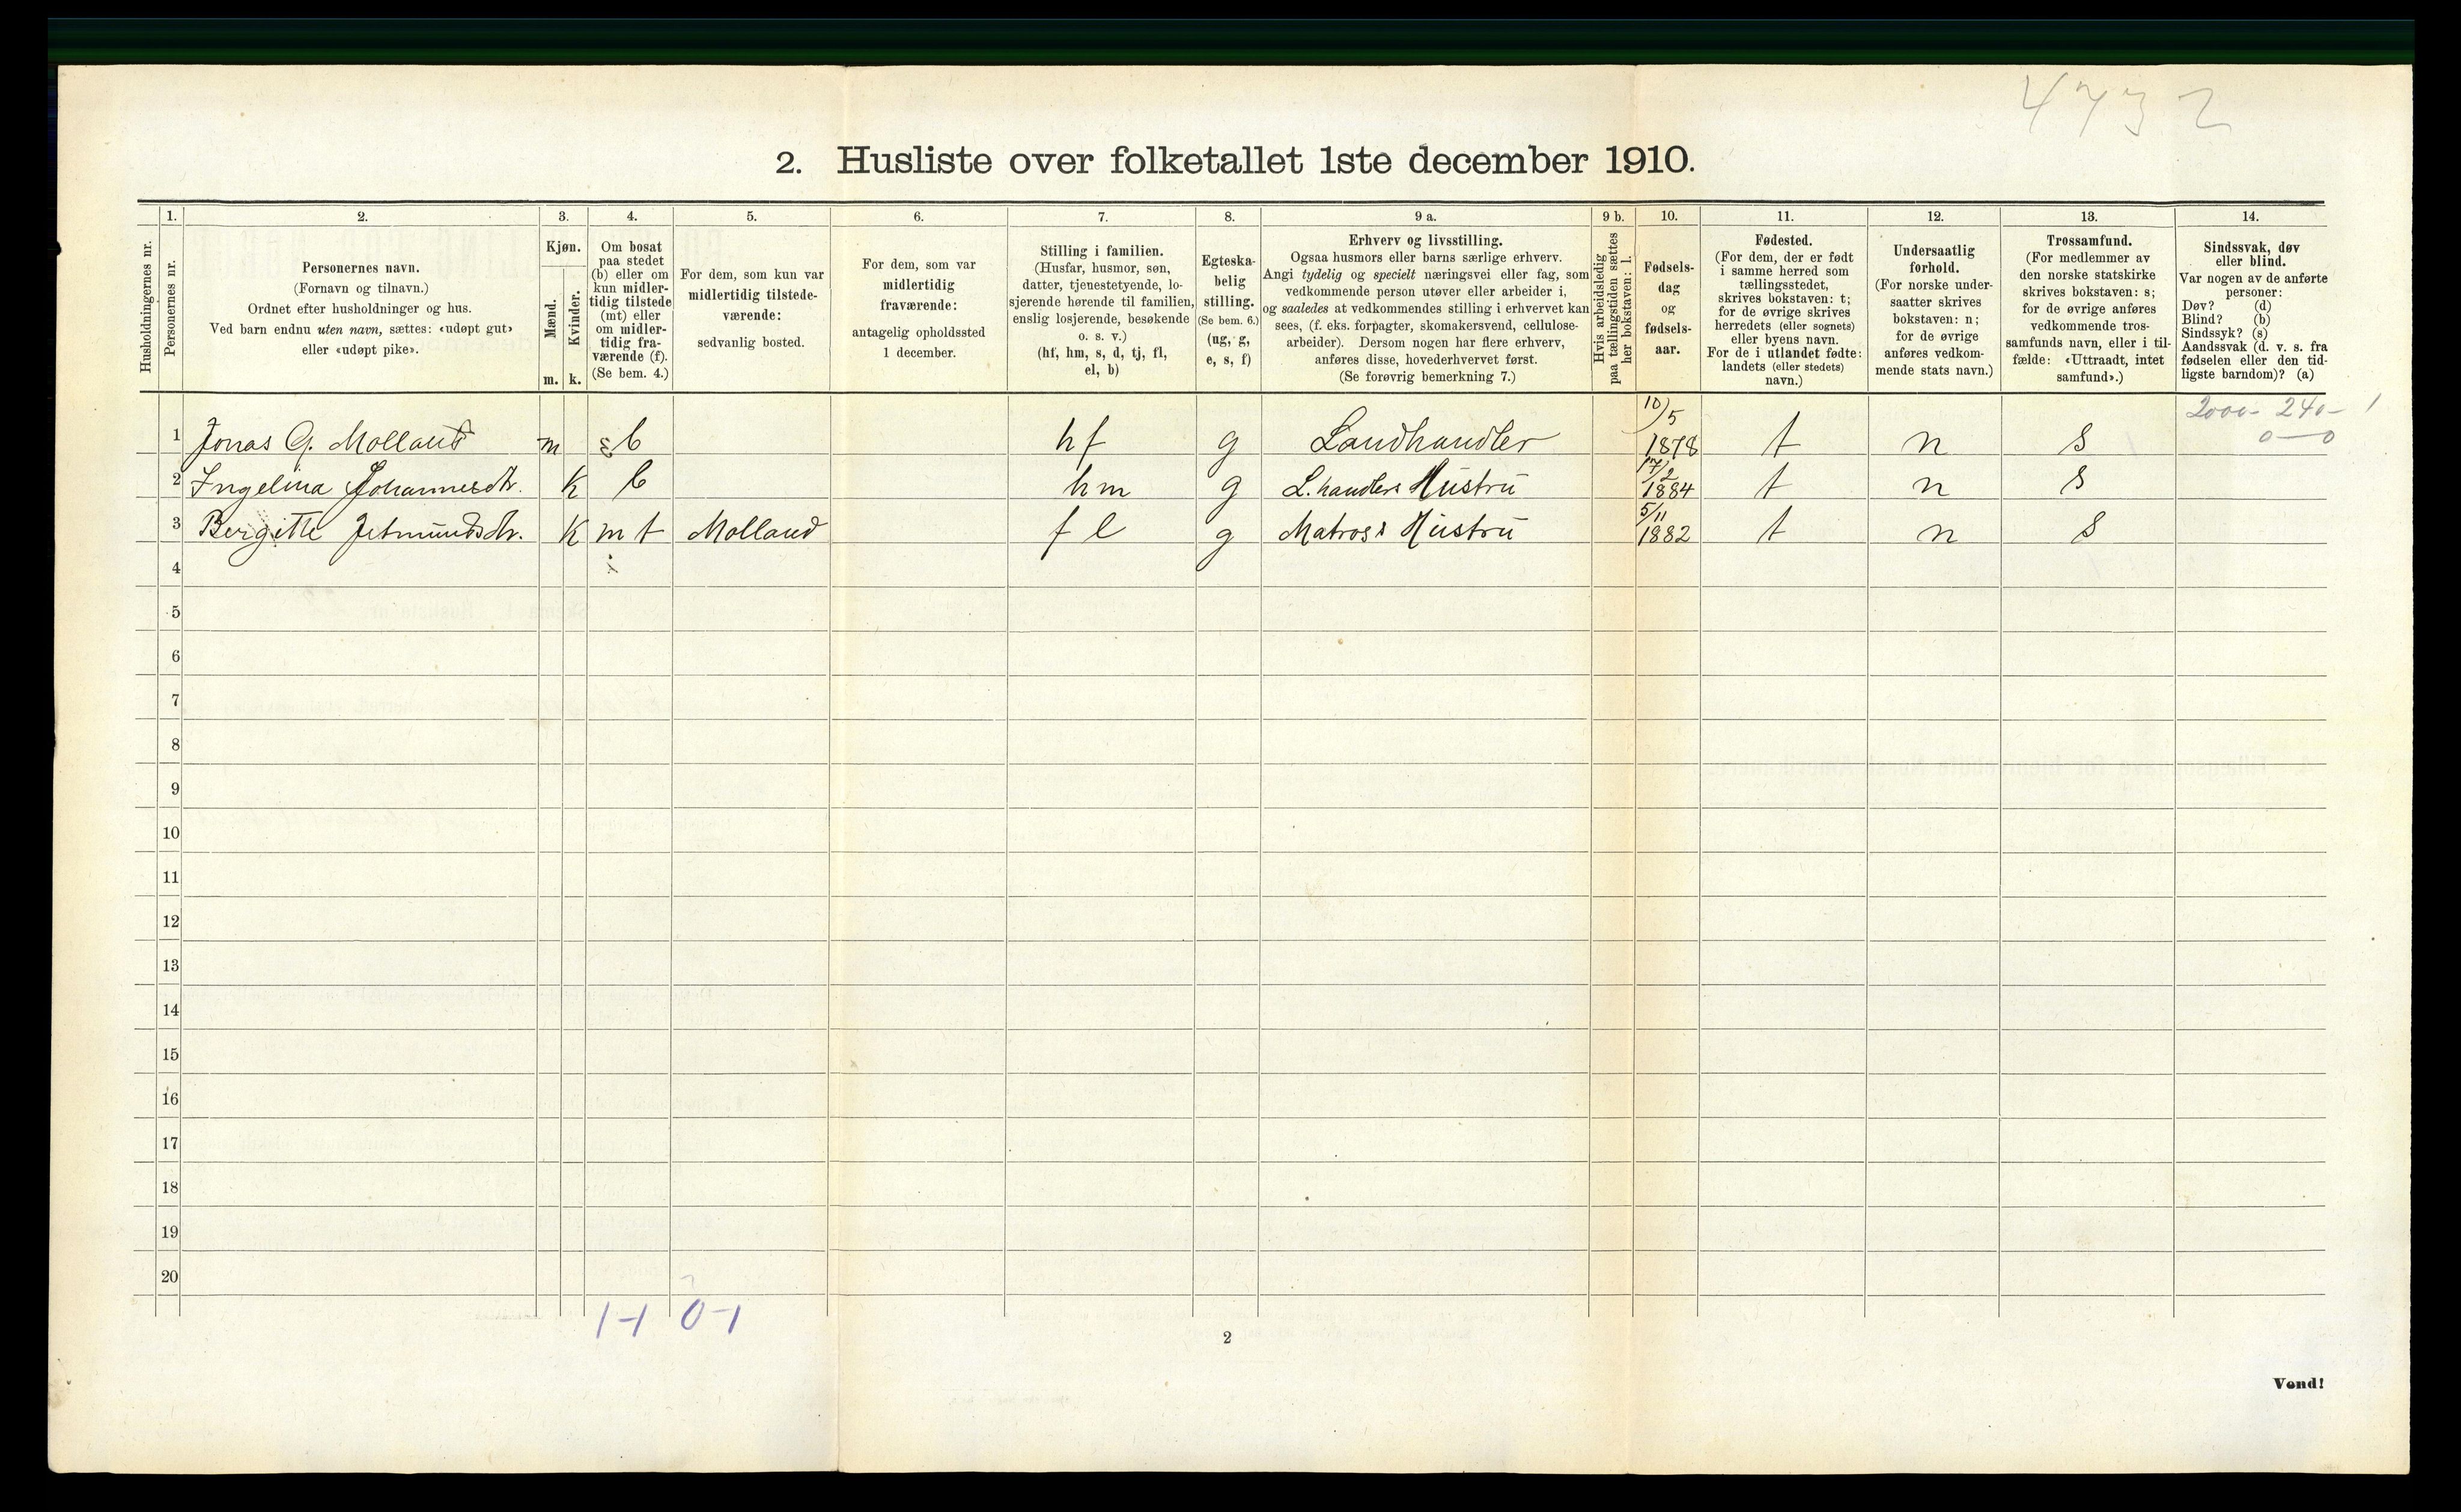 4732
2. Husliste over folketallet 1ste december 1910.
Husholdningernes nr.
1.
Personernes nr.
2.
Personernes navn.
(Fornavn og tilnavn.)
Ordnet efter husholdninger og hus.
Ved barn endnu uten navn, sættes: «udøpt gut»
eller «udøpt pike».
3.
Kjøn.
Mænd.
Kvinder.
m. k.
4.
Om bosat
paa stedet
(b) eller om
kun midler-
tidig tilstede
(mt) eller
om midler-
tidig fra-
værende (f).
(Se bem. 4.)
5.
For dem, som kun var
midlertidig tilstede-
værende:
sedvanlig bosted.
6.
For dem, som var
midlertidig
fraværende:
antagelig opholdssted
1 december.
7.
Stilling i familien.
(Husfar, husmor, søn,
datter, tjenestetyende, lo-
sjerende hørende til familien,
enslig losjerende, besøkende
o. s. v.)
(hf, hm, s, d, tj, fl,
el, b)
8.
Egteska-
belig
stilling.
(Se bem. 6.)
(ug, g,
e, s, f)
9 a.
Erhverv og livsstilling.
Ogsaa husmors eller barns særlige erhverv.
Angi tydelig og specielt næringsvei eller fag, som
vedkommende person utøver eller arbeider i,
og saaledes at vedkommendes stilling i erhvervet kan
sees, (f. eks. forpagter, skomakersvend, cellulose-
arbeider). Dersom nogen har flere erhverv,
anføres disse, hovederhvervet først.
(Se forøvrig bemerkning 7.)
9 b.
Hvis arbeidsledig
paa tællingstiden sættes
her bokstaven: l.
10.
Fødsels-
dag
og
fødsels-
aar.
11.
Fødested.
(For dem, der er født
i samme herred som
tællingsstedet,
skrives bokstaven: t;
for de øvrige skrives
herredets (eller sognets)
eller byens navn.
For de i utlandet fødte:
landets (eller stedets)
navn.)
12.
Undersaatlig
forhold.
(For norske under-
saatter skrives
bokstaven: n;
for de øvrige
anføres vedkom-
mende stats navn.)
13.
Trossamfund.
(For medlemmer av
den norske statskirke
skrives bokstaven: s;
for de øvrige anføres
vedkommende tros-
samfunds navn, eller i til-
fælde: «Uttraadt, intet
samfund».)
14.
Sindssvak, døv
eller blind.
Var nogen av de anførte
personer:
Døv? (d)
Blind? (b)
Sindssyk? (s)
Aandssvak (d. v. s. fra
fødselen eller den tid-
ligste barndom)? (a)
2000- 240- 1
0-0
1 Jonas G. Molland m b hf g Landhandler 10/5 1878 t n s
2 Ingelina Johannesdtr. k b hm g L. handlers Hustru 17/2 1884 t n s
3 Bergitte Jetmundsdtr. k mt Molland fl g Matros's Hustru 5/11 1882 t n s
4
5
6
7
8
9
10
11
12
13
14
15
16
17
18
19
20
1-1 0-1
2
Vend!